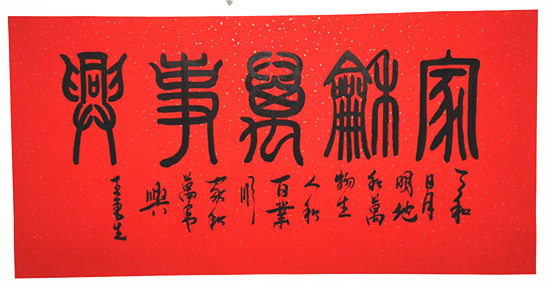 家龢萬事興
天和
日月
明地
和萬
物生
人和
百業
順
家和
萬事
興